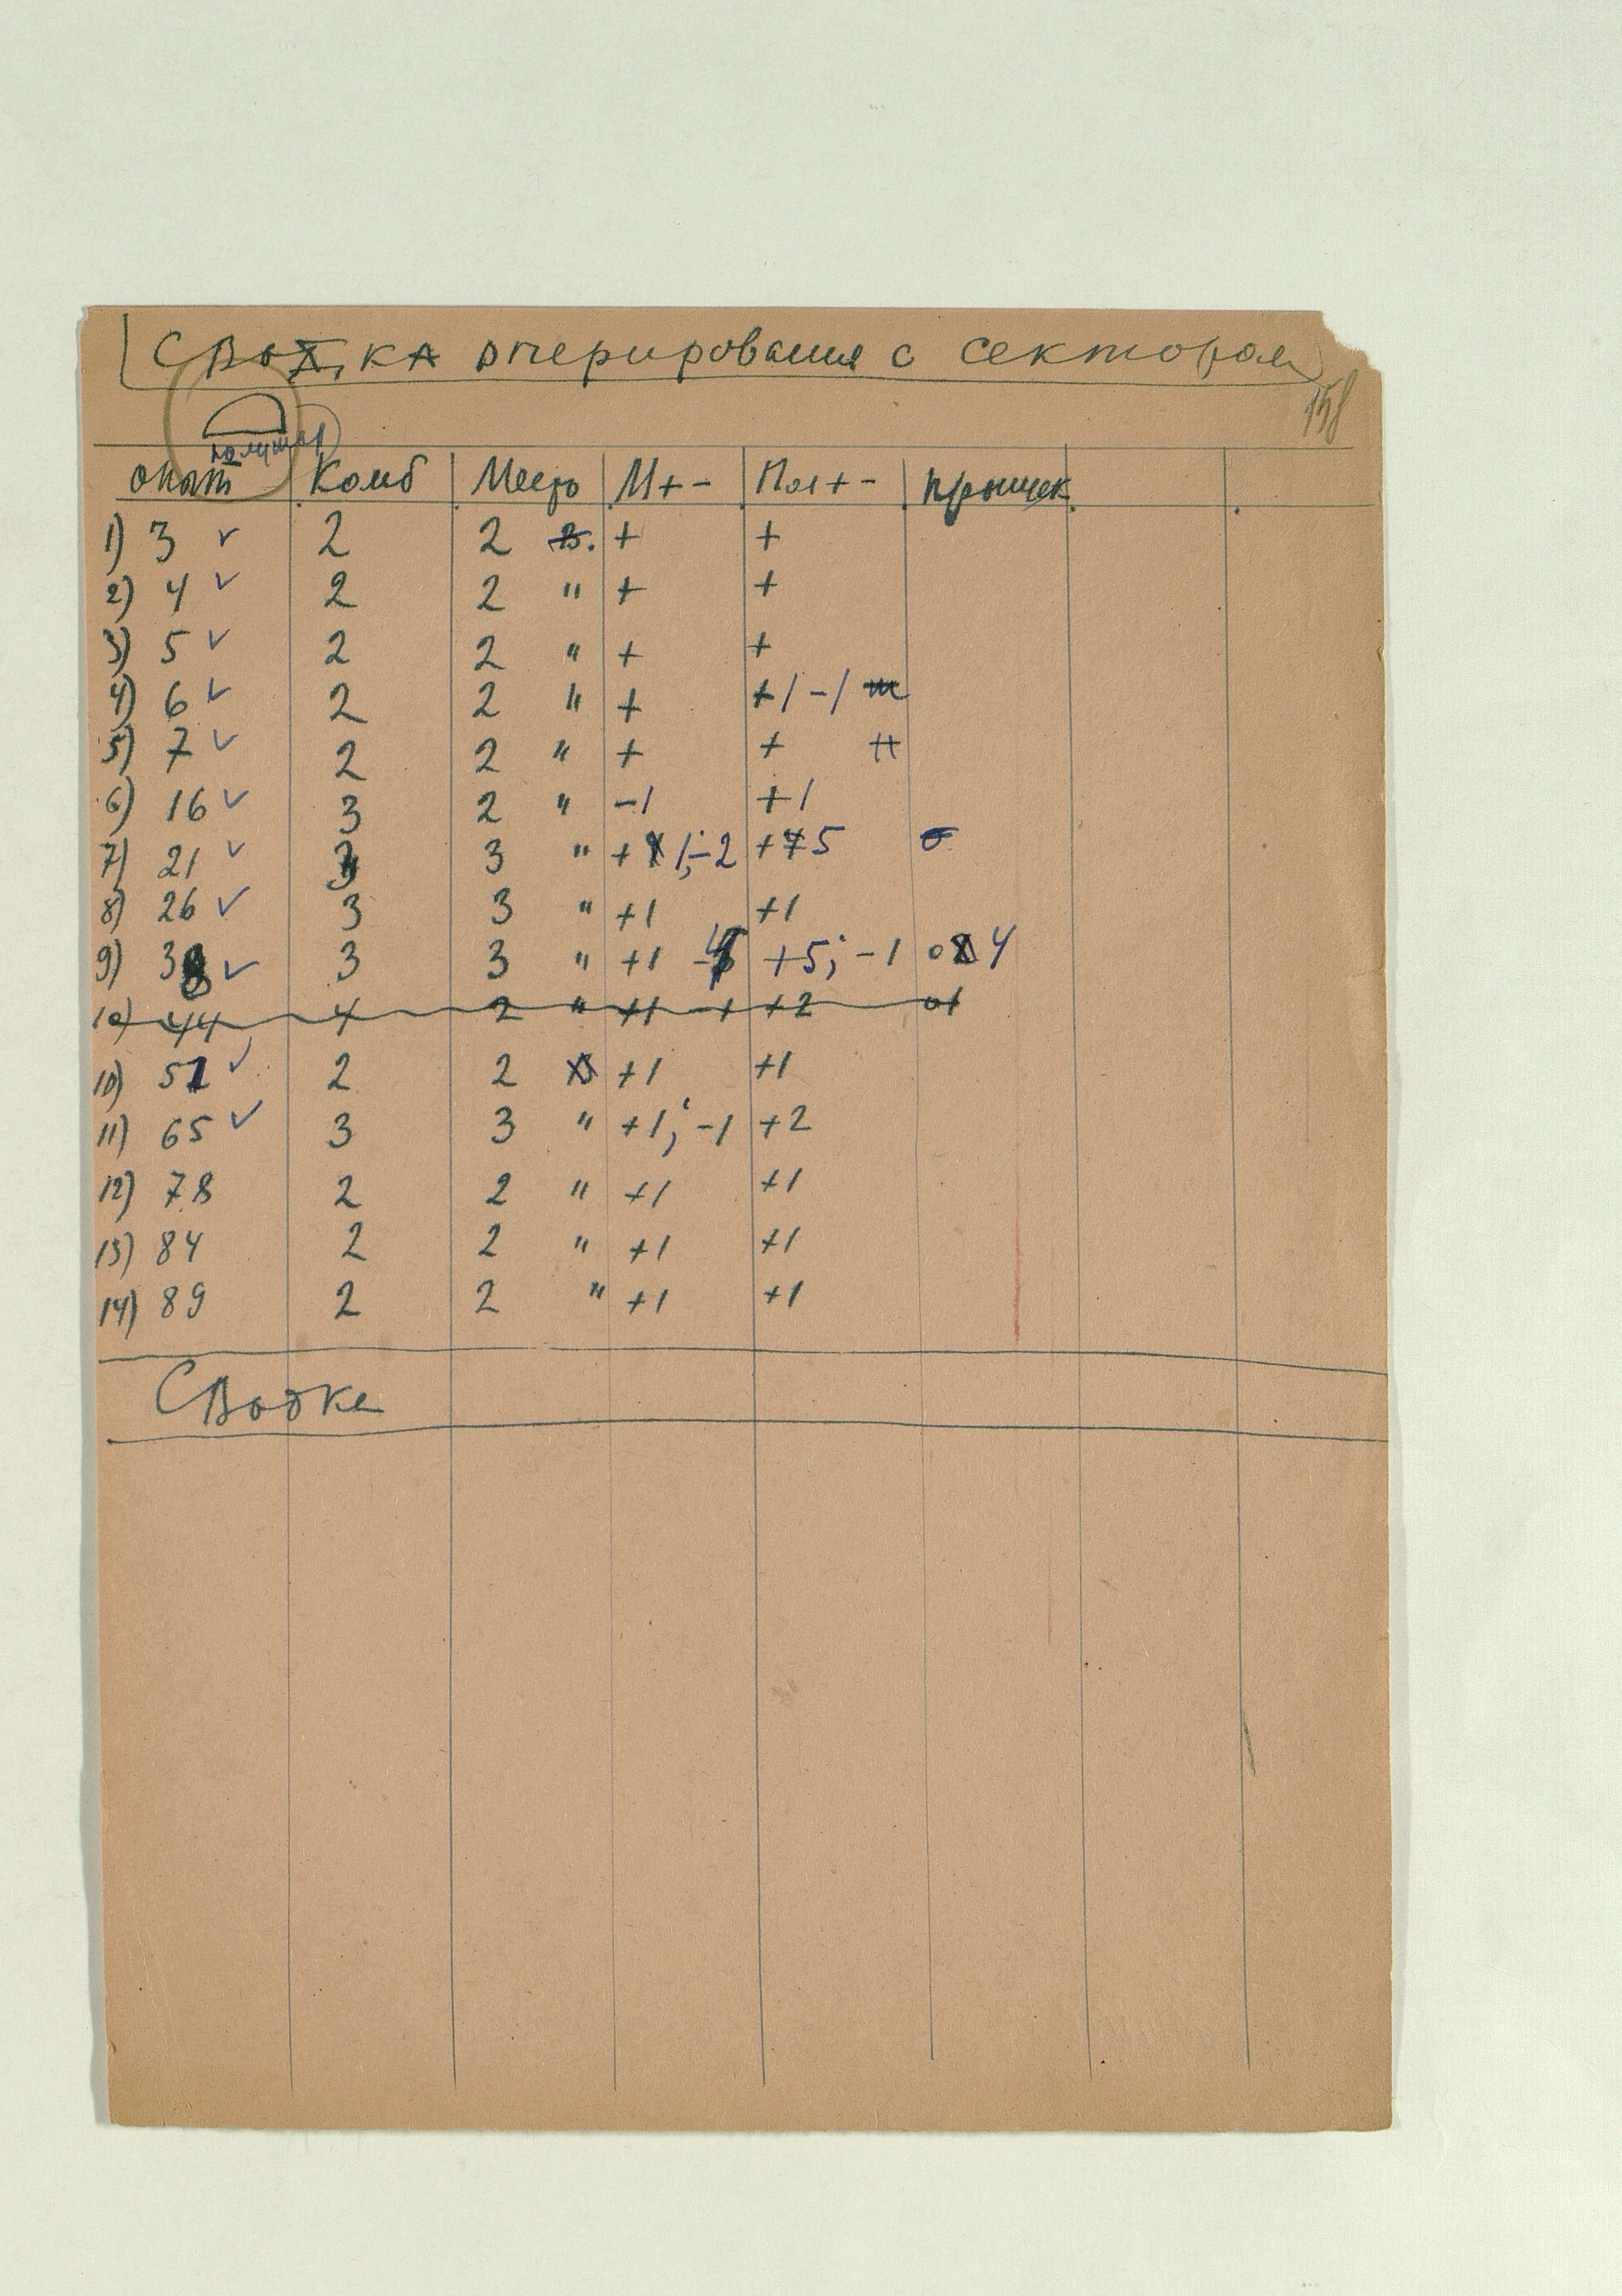 Сводка оперирования с сектором
158
опыт Комб Место М+- Пол+- промеж.
1) 3 ✓ 2 2 В. + +
2) 4 ✓ 2 2 " + +
3) 5 ✓ 2 2 " + +
4) 6 ✓ 2 2 " + +1 -1
5) 7 ✓ 2 2 " + +
6) 16 ✓ 3 2 " -1 +1
7) 21 ✓ 3 3 " +1; -2 +5
8) 26 ✓ 3 3 " +1 +1
9) 38 ✓ 3 3 " +1 -4 +5; -1 о 4
10) 44 4 2 " +1 -1 +2 о1
10) 52 ✓ 2 2 +1 +1
11) 65 ✓ 3 3 " +1; -1 +2
12) 78 2 2 " +1 +1
13) 84 2 2 " +1 +1
14) 89 2 2 " +1 +1
Сводка